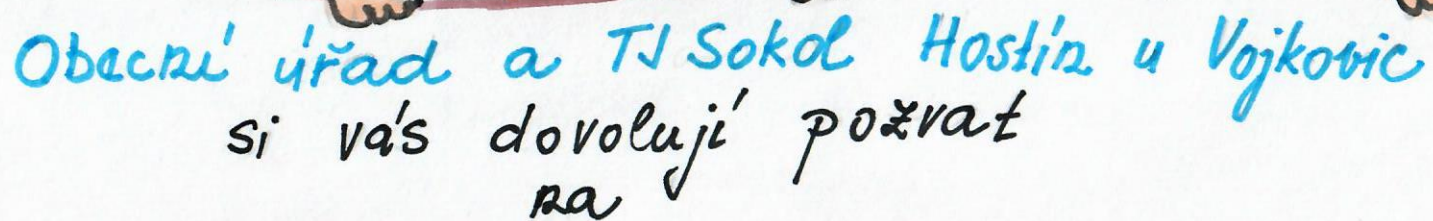 Obecní úřad a TJ Sokol Hostín u Vojkovic
si vás dovolují pozvat
na